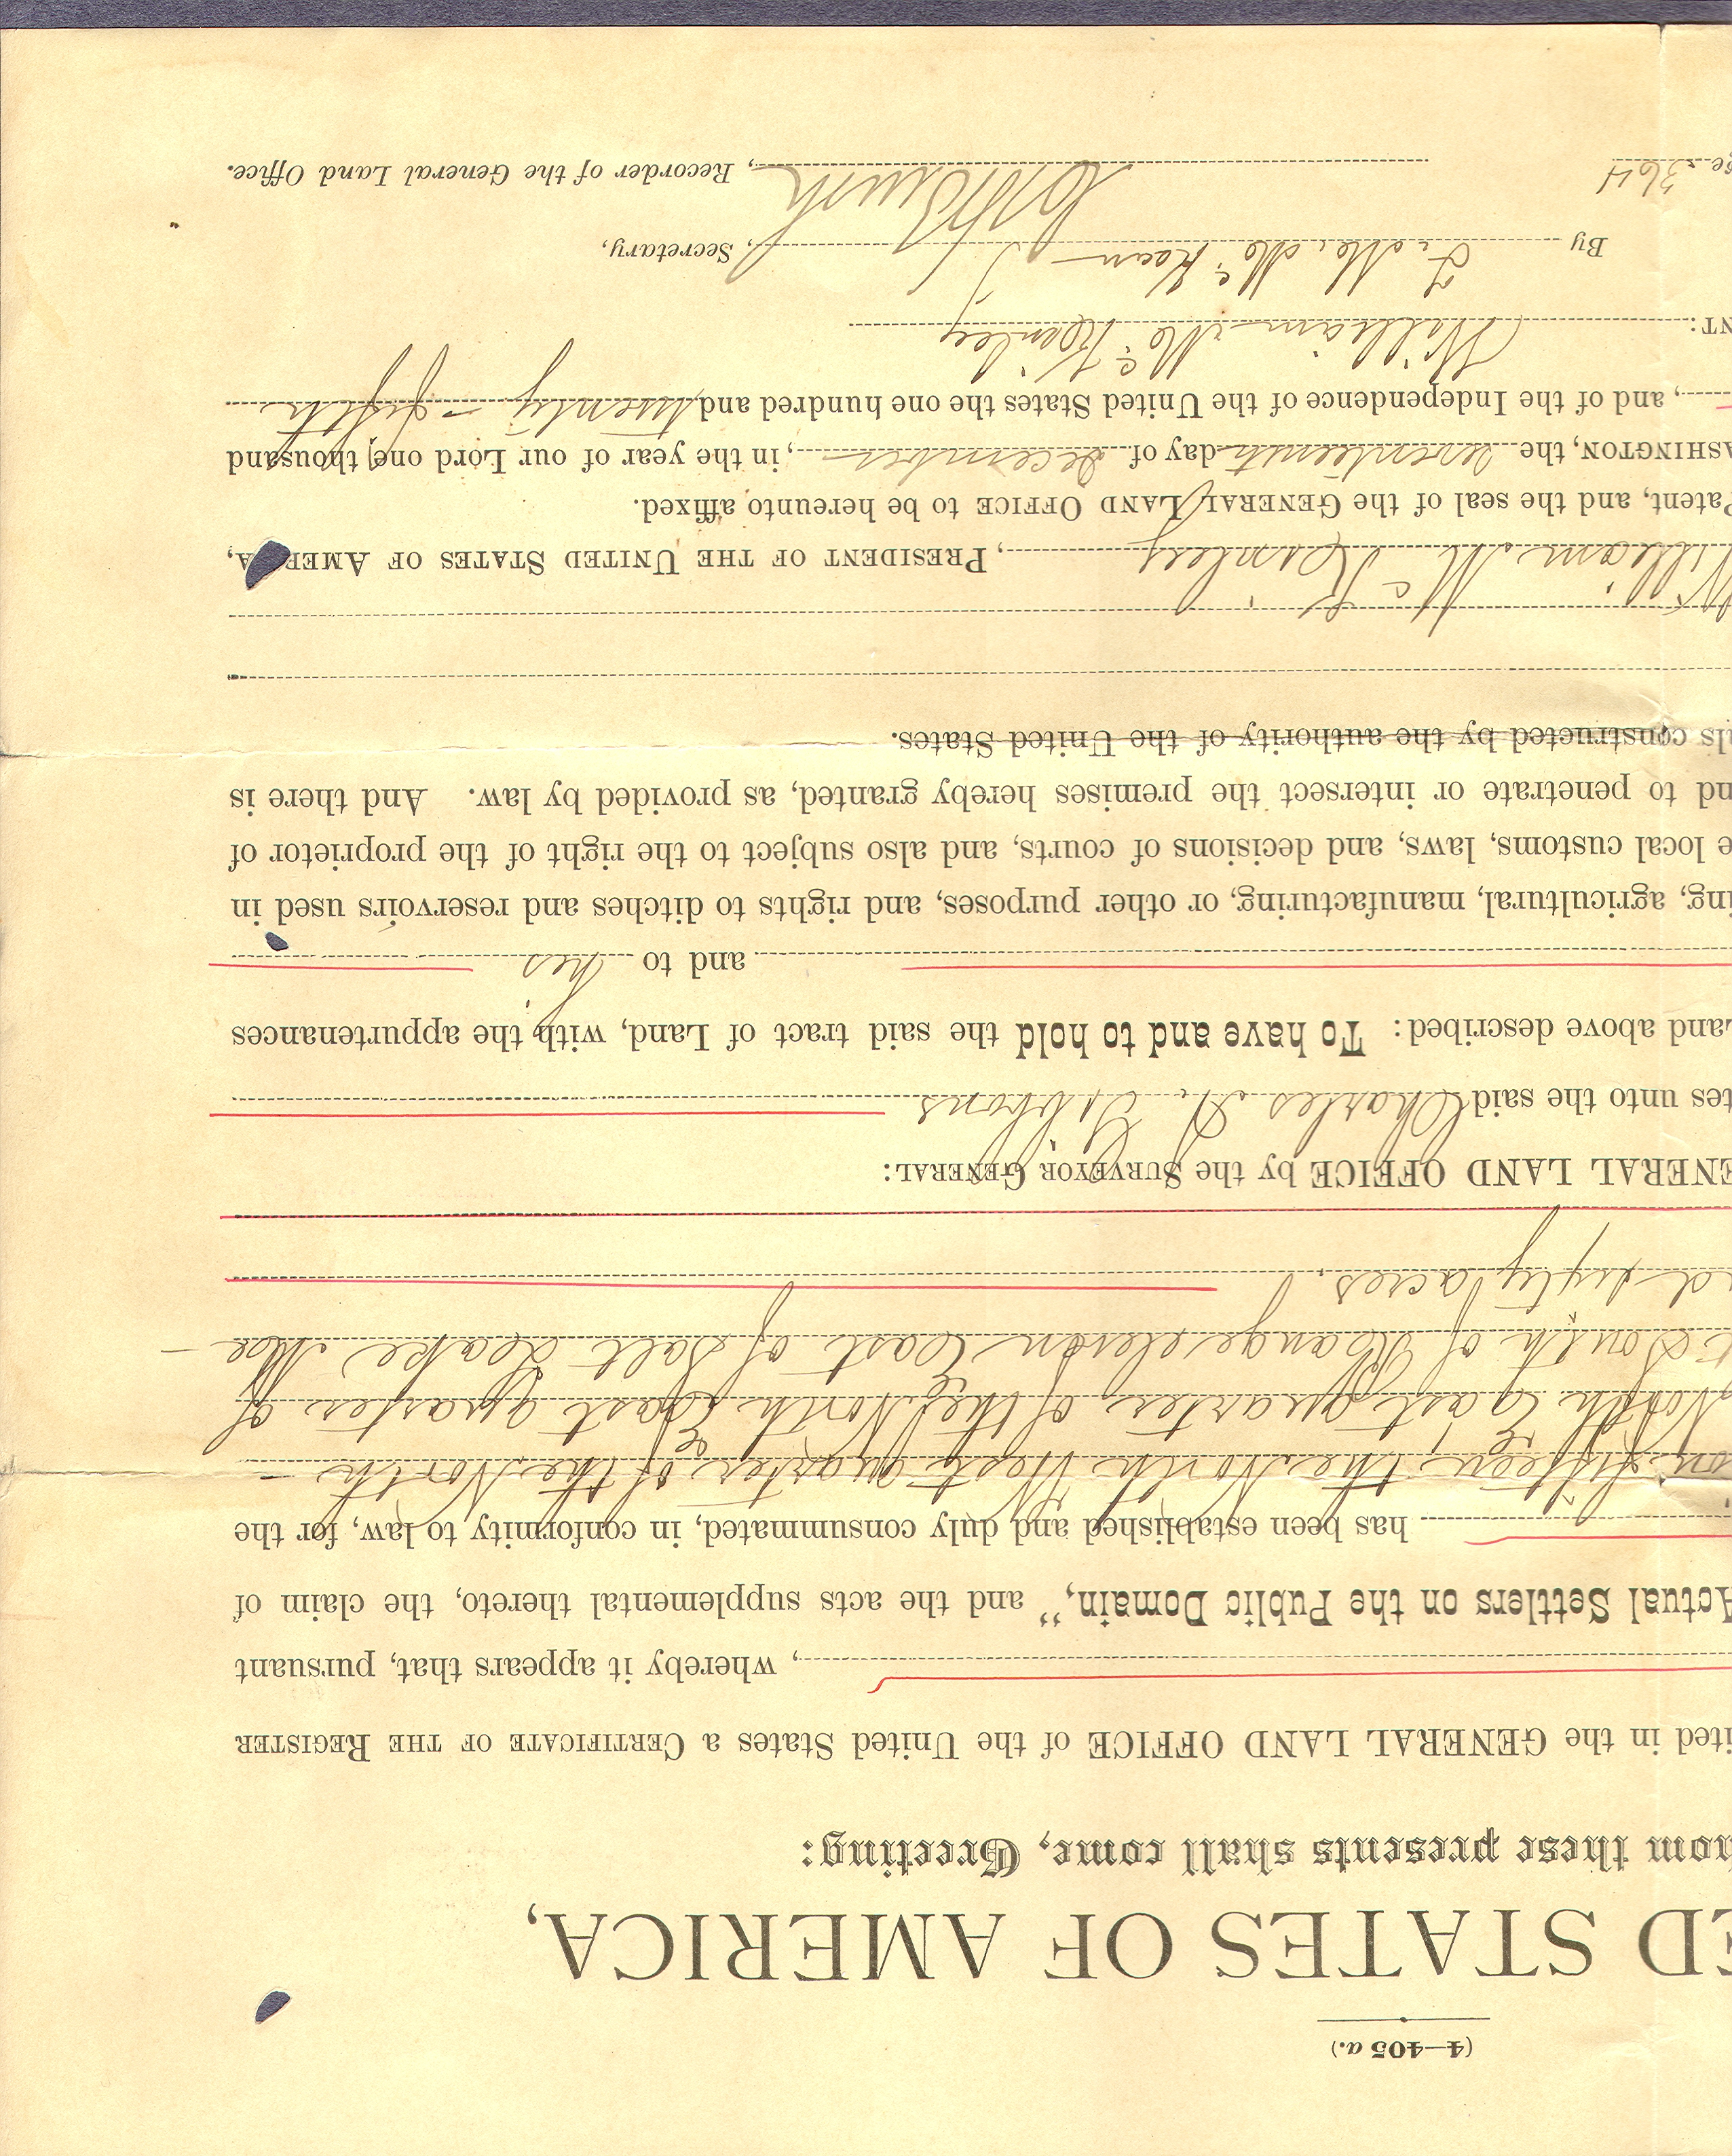 (4—405 a.)
ED STATES OF AMERICA,
hom these presents shall come, Greeting:
ited in the GENERAL LAND OFFICE of the United States a CERTIFICATE OF THE REGISTER
, whereby it appears that, pursuant
Actual Settlers on the Public Domain," and the acts supplemental thereto, the claim of
has been established and duly consummated, in conformity to law, for the
on fifteen, the North West quarter of the North
North East quarter of the North East quarter of
South of Range eleven East of Salt Lake Me
d sixty acres.
ENERAL LAND OFFICE by the SURVEYOR GENERAL:
tes unto the said Charles A. Gibbons
Land above described: To have and to hold the said tract of Land, with the appurtenances
and to his
ing, agricultural, manufacturing, or other purposes, and rights to ditches and reservoirs used in
e local customs, laws, and decisions of courts, and also subject to the right of the proprietor of
nd to penetrate or intersect the premises hereby granted, as provided by law. And there is
ls constructed by the authority of the United States.
William McKinley, PRESIDENT OF THE UNITED STATES OF AMERICA,
Patent, and the seal of the GENERAL LAND OFFICE to be hereunto affixed.
ASHINGTON, the seventeenth day of December, in the year of our Lord one thousand
, and of the Independence of the United States the one hundred and twenty-fifth
NT: William McKinley
By F. M. McKean, Secretary,
ge 364 C. H. Brush, Recorder of the General Land Office.